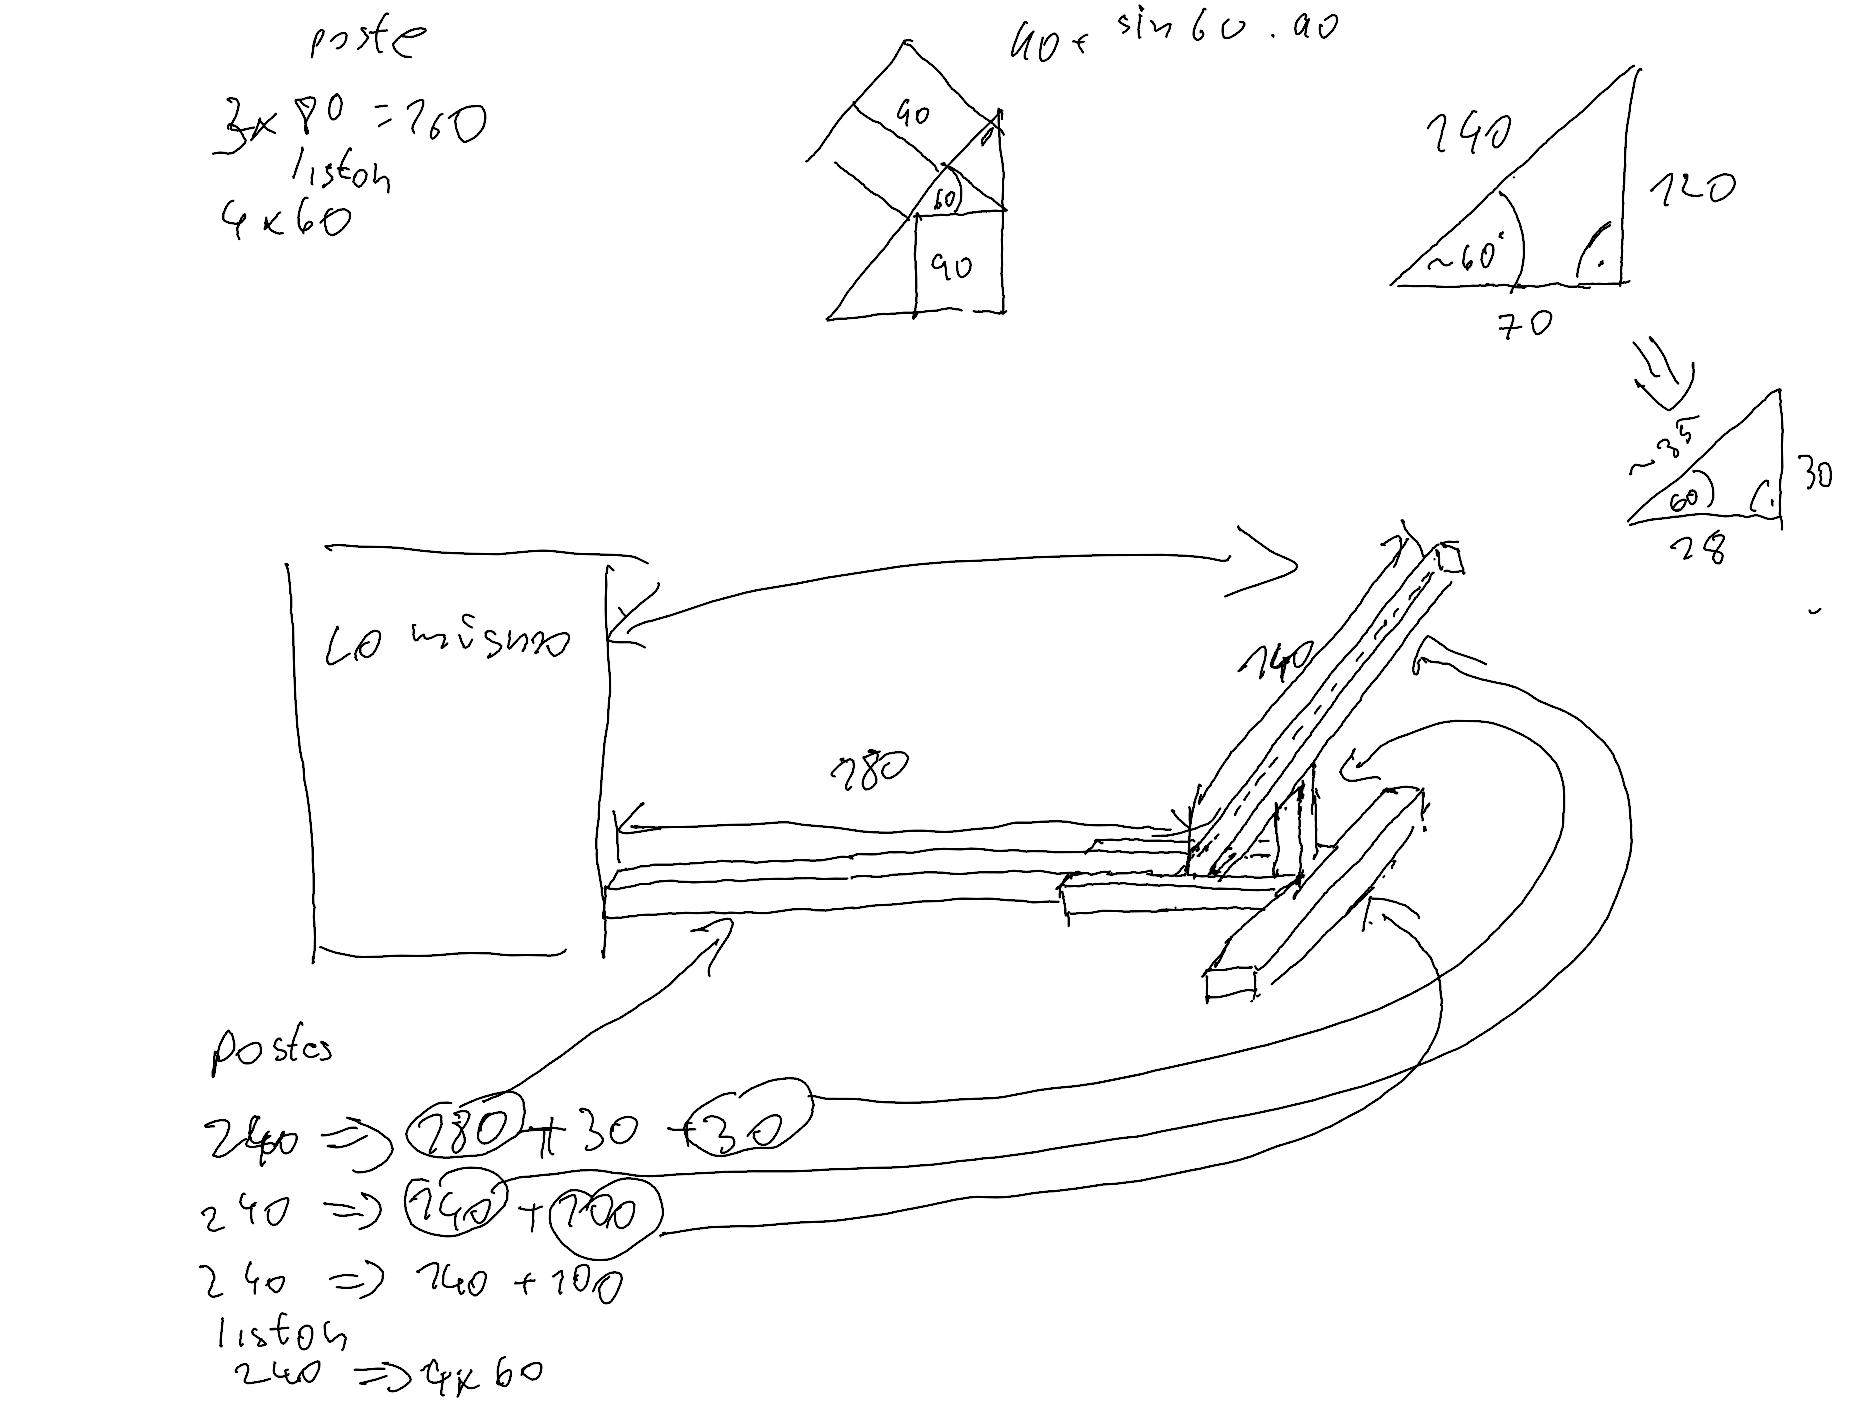 poste
3x 80 = 160
liston
4 x 60
90 + sin 60 . 90
90
60
90
140
120
~60°
70
~35
30
60
18
Lo mismo
140
180
Postes
240 => 180 + 30 + 30
240 => 140 + 100
240 => 140 + 100
liston
240 => 4x60